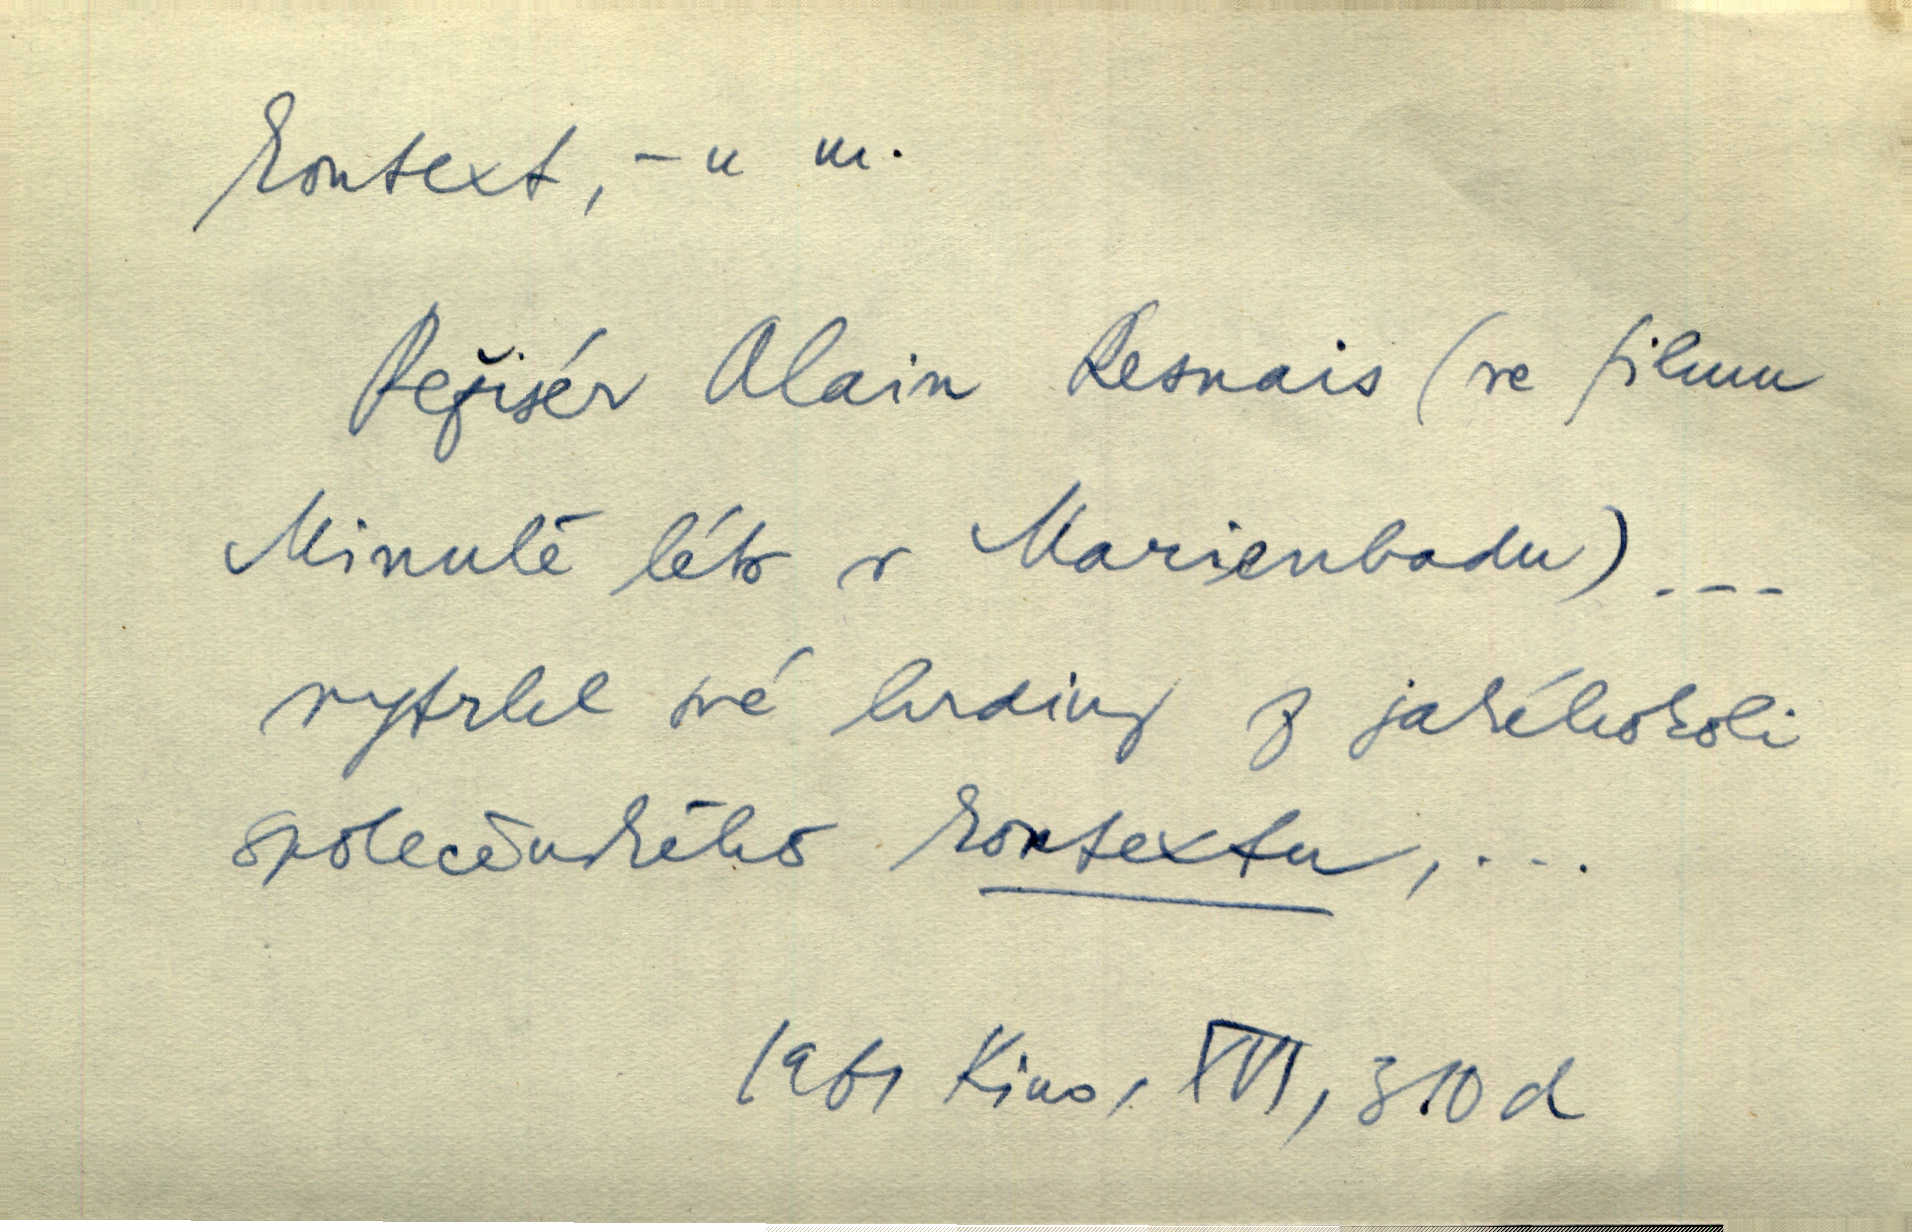 kontext, -u m.
Režisér Alain Resnais (ve filmu
Minulé léto v Marienbadu) ...
vytrhl své hrdiny z jakéhokoli
společenského kontextu, ...
1961 Kino, XVI, 310 d